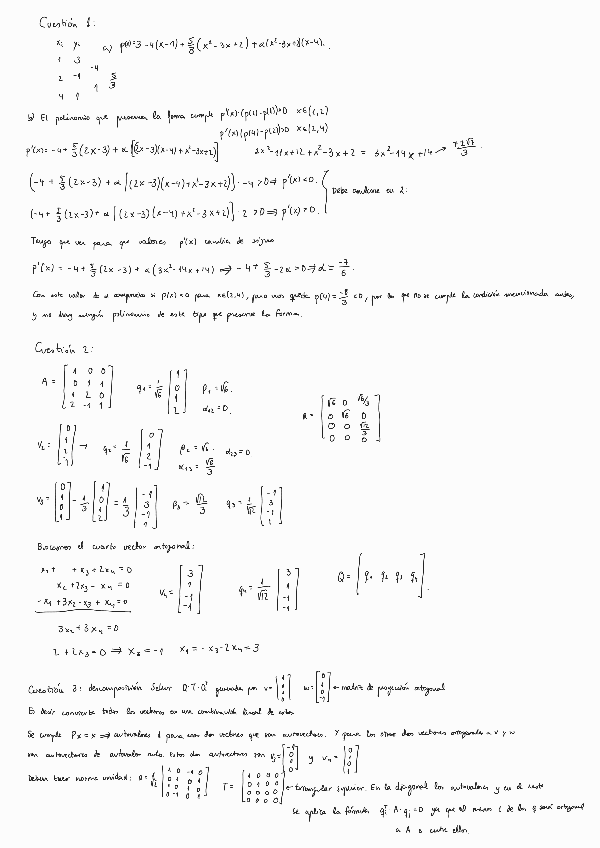 Cuestión 1:
xi yi a) p(x)=3-4(x-1)+5/3(x²-3x+2)+α(x²-3x+2)(x-4).
1 3
-4
2 -1 5/3
1
4 1
b) El polinomio que preserva la forma cumple p'(x)·(p(2)-p(1))>0 x∈(1,2)
p'(x)(p(4)-p(2))>0 x∈(2,4)
p'(x)=-4+5/3(2x-3)+α[(2x-3)(x-4)+x²-3x+2] 2x²-11x+12+x²-3x+2 = 3x²-14x+14 → 7±√7/3.
(-4+5/3(2x-3)+α[(2x-3)(x-4)+x²-3x+2])·-4>0⇒p'(x)<0.
Debe anularse en 2:
(-4+5/3(2x-3)+α[(2x-3)(x-4)+x²-3x+2])·2>0⇒p'(x)>0.
Tengo que ver para que valores p'(x) cambia de signo
p'(x)=-4+5/3(2x-3)+α(3x²-14x+14) ⇒ -4+5/3-2α>0⇒α=-7/6.
Con este valor de α compruebo si p(x)<0 para x∈(2,4), pero nos queda p(4)=-8/3<0, por lo que no se cumple la condición mencionada antes,
y no hay ningún polinomio de este tipo que preserve la forma.
Cuestión 2:
A = [1 0 0
0 1 1
1 2 0
2 -1 1] q1=1/√6 [1 0 1 2] ρ1=√6. α12=0.
R = [√6 0 √6/3
0 √6 0
0 0 √12/3
0 0 0]
v2=[0 1 2 -1] → q2=1/√6 [0 1 2 -1] ρ2=√6. α13=√6/3 α23=0
v3=[0 1 0 1]-1/3[1 0 1 2]=1/3[-1 3 -1 1] ρ3=√12/3 q3=1/√12 [-1 3 -1 1]
Buscamos el cuarto vector ortogonal:
x1+ +x3+2x4=0
x2+2x3-x4=0
-x1+3x2-x3+x4=0
v4=[3 1 -1 -1] q4=1/√12 [3 1 -1 -1] Q=[q1 q2 q3 q4].
3x2+3x4=0
2+2x3=0 ⇒ x3=-1 x1=-x3-2x4=3
Cuestión 3: descomposición Schur Q·T·Q^T generada por v=[1 1 1 0] w=[0 1 0 -1] ← matriz de proyección ortogonal
Es decir convierte todos los vectores en una combinación lineal de estos
Se cumple Px=x ⇒ autovalores 1 para esos dos vectores que son autovectores. Y para los otros dos vectores ortogonales a v y w
son autovectores de autovalor nulo. Estos dos autovectores son v3=[-1 0 1 0] y v4=[0 1 0 1]
Deben tener norma unidad: Q=1/√2 [1 0 -1 0
0 1 0 1
1 0 1 0
0 -1 0 1] T=[1 0 0 0
0 1 0 0
0 0 0 0
0 0 0 0] ← triangular superior. En la diagonal los autovalores y en el resto
se aplica la fórmula qi^T·A·qj=0 ya que al menos 1 de los q será ortogonal
a A o entre ellos.